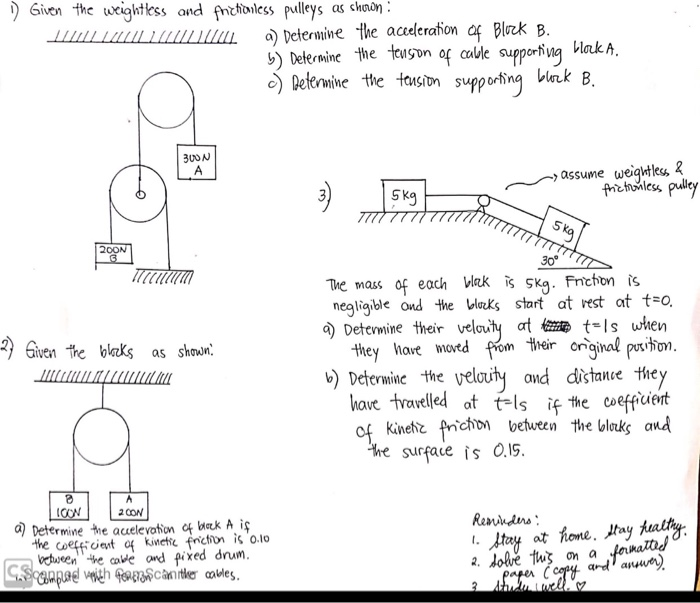 1) Given the weightless and frictionless pulleys as shown:
a) Determine the acceleration of Block B.
b) Determine the tension of cable supporting block A.
c) Determine the tension supporting block B.
300N
A
200N
B
2) Given the blocks as shown:
B
100N
A
200N
a) Determine the acceleration of block A if
the coefficient of kinetic friction is 0.10
between the cable and fixed drum.
CS Scanned with CamScanner cables.
3)
5kg
→ assume weightless &
frictionless pulley
5kg
30°
The mass of each block is 5kg. Friction is
negligible and the blocks start at rest at t=0.
a) Determine their velocity at t=1s when
they have moved from their original position.
b) Determine the velocity and distance they
have travelled at t=1s if the coefficient
of kinetic friction between the blocks and
the surface is 0.15.
Reminders:
1. Stay at home. Stay healthy.
2. Solve this on a formatted
paper (copy and answer).
3 study well. ♡